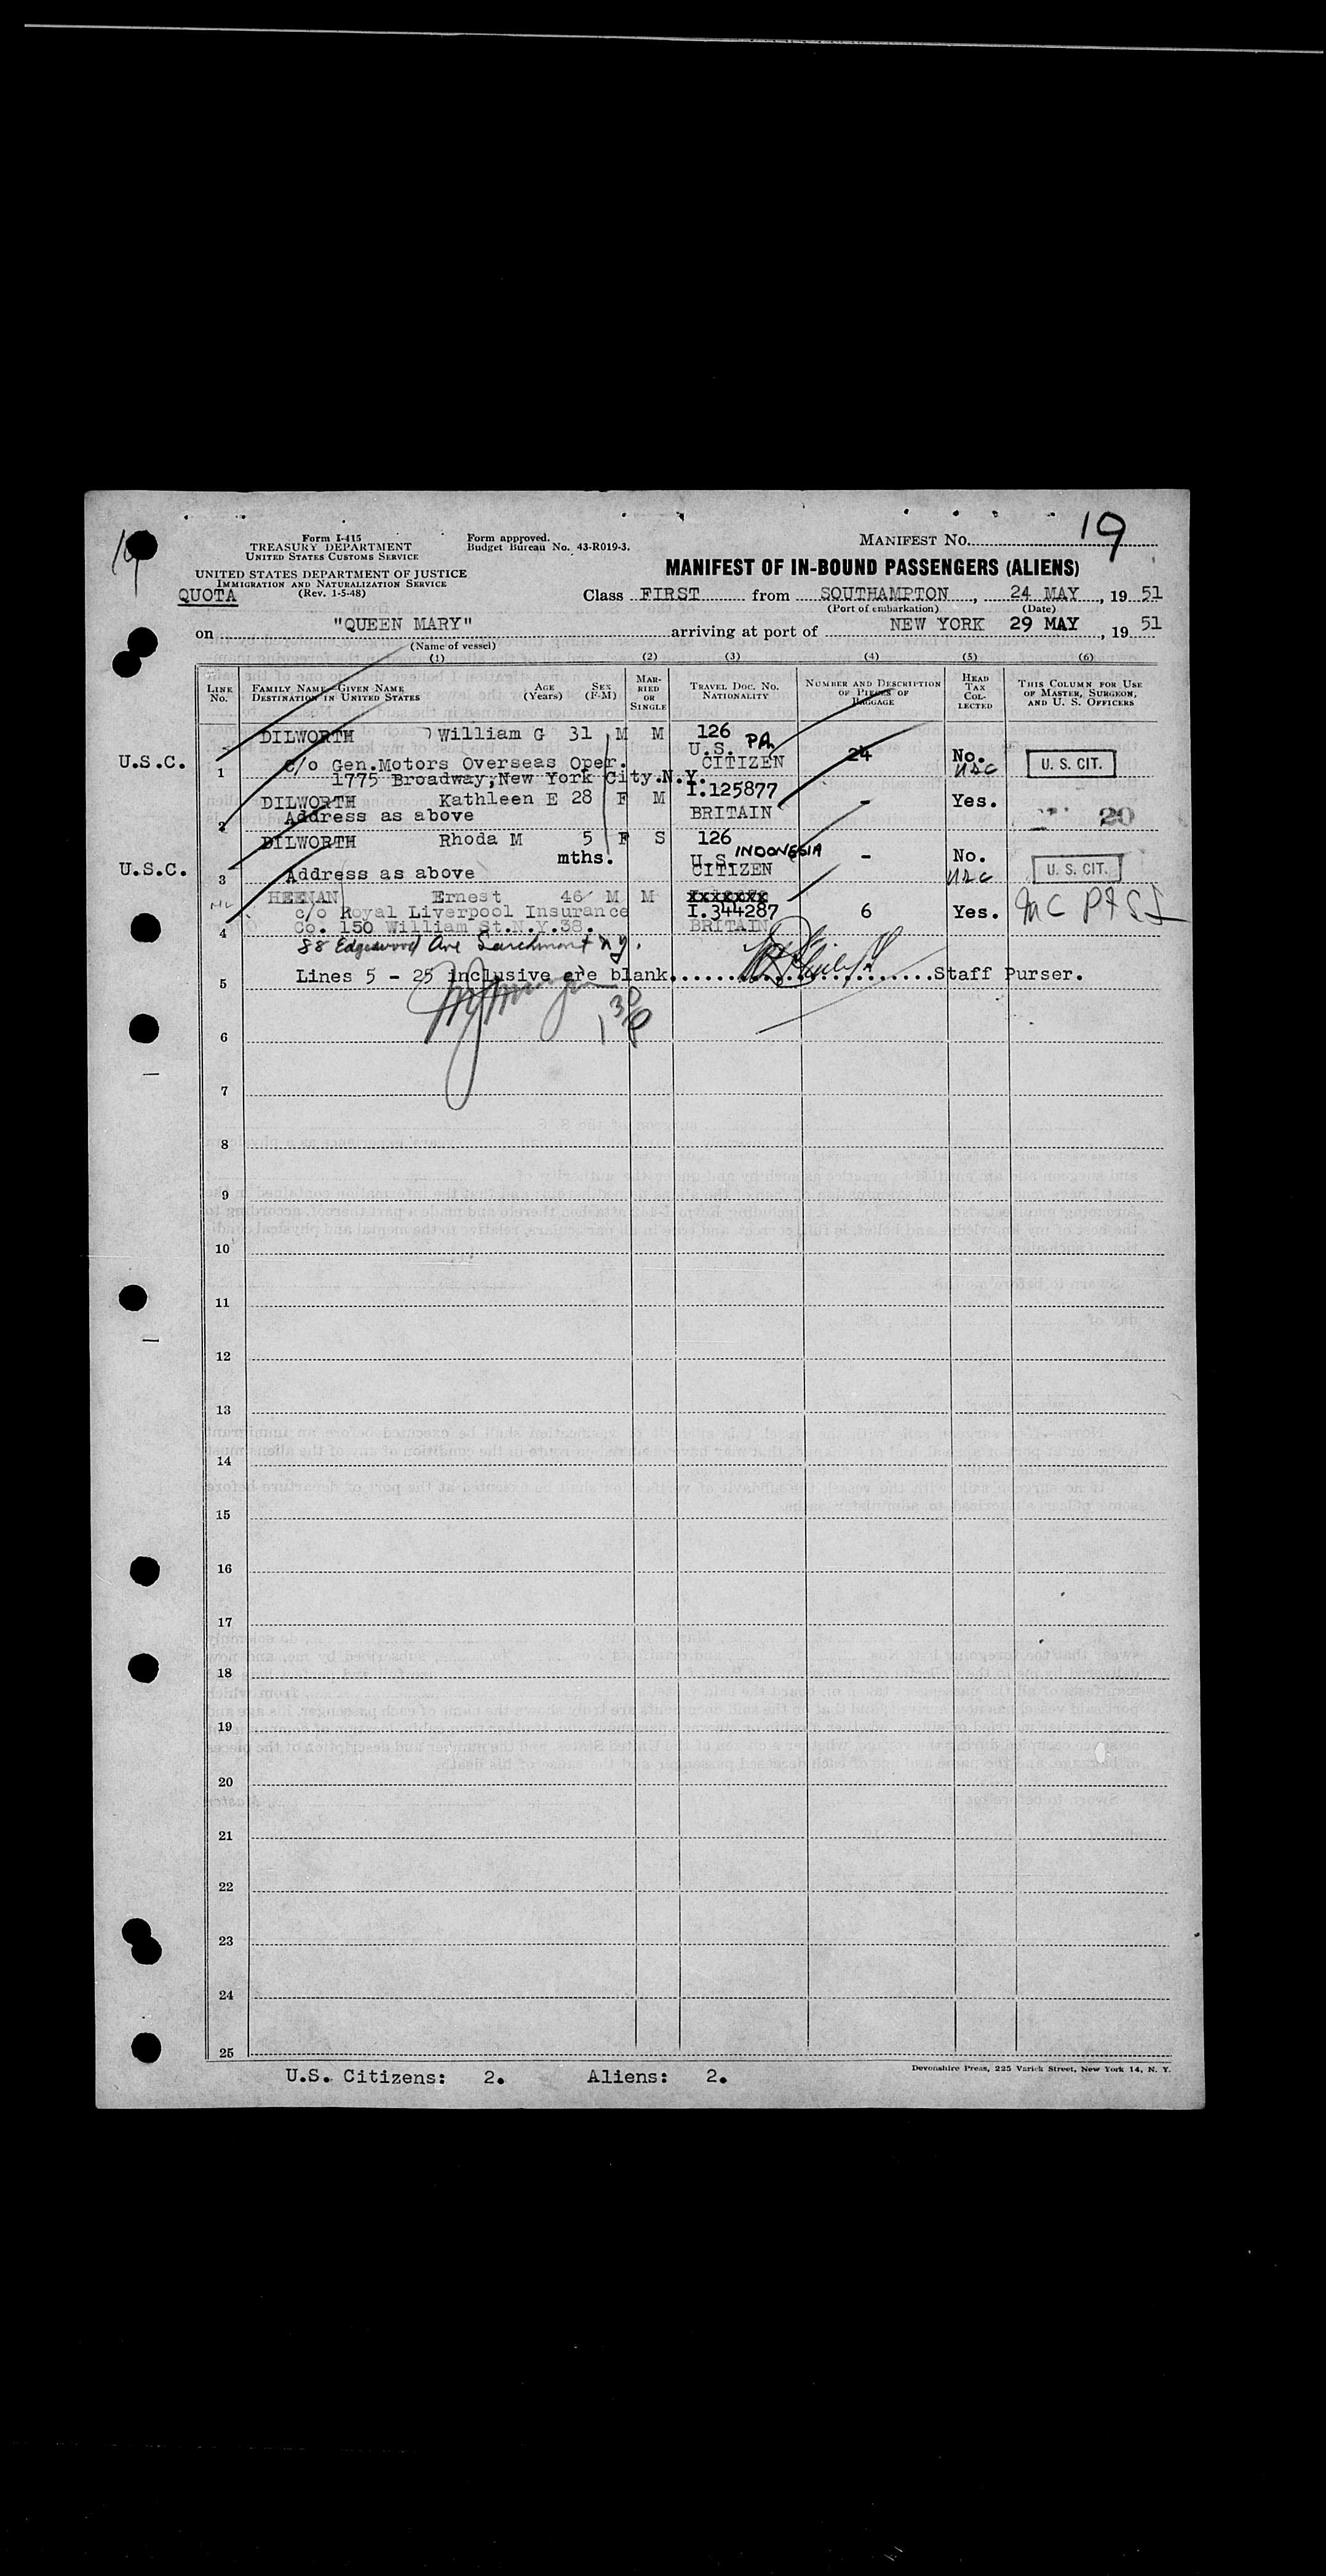 19
Form I-415
TREASURY DEPARTMENT
UNITED STATES CUSTOMS SERVICE
Form approved.
Budget Bureau No. 43-R019-3.
MANIFEST No. 19
UNITED STATES DEPARTMENT OF JUSTICE
IMMIGRATION AND NATURALIZATION SERVICE
(Rev. 1-5-48)
QUOTA
MANIFEST OF IN-BOUND PASSENGERS (ALIENS)
Class FIRST from SOUTHAMPTON, 24 MAY, 19 51
(Port of embarkation) (Date)
on "QUEEN MARY" arriving at port of NEW YORK 29 MAY, 19 51
(Name of vessel)
(1) (2) (3) (4) (5) (6)
LINE No. FAMILY NAME—GIVEN NAME DESTINATION IN UNITED STATES AGE (Years) SEX (F-M) MARRIED OR SINGLE TRAVEL DOC. NO. NATIONALITY NUMBER AND DESCRIPTION OF PIECES OF BAGGAGE HEAD TAX COLLECTED THIS COLUMN FOR USE OF MASTER, SURGEON, AND U. S. OFFICERS
DILWORTH William G 31 M M 126
U.S.C. 1 c/o Gen.Motors Overseas Oper. U.S. CITIZEN 24 No. USC U. S. CIT.
1775 Broadway, New York City.N.Y.
DILWORTH Kathleen E 28 F M I.125877 Yes.
2 Address as above BRITAIN - 20
DILWORTH Rhoda M 5 mths. F S 126 INDONESIA
U.S.C. 3 Address as above U.S. CITIZEN - No. USC U. S. CIT.
HEENAN Ernest 46 M M
c/o Royal Liverpool Insurance I.344287 6 Yes.
4 Co. 150 William St.N.Y.38. BRITAIN
88 Edgewood Ave Larchmont N.Y.
5 Lines 5 - 25 inclusive are blank. Staff Purser.
6
7
8
9
10
11
12
13
14
15
16
17
18
19
20
21
22
23
24
25
U.S. Citizens: 2. Aliens: 2.
Devonshire Press, 225 Varick Street, New York 14, N. Y.